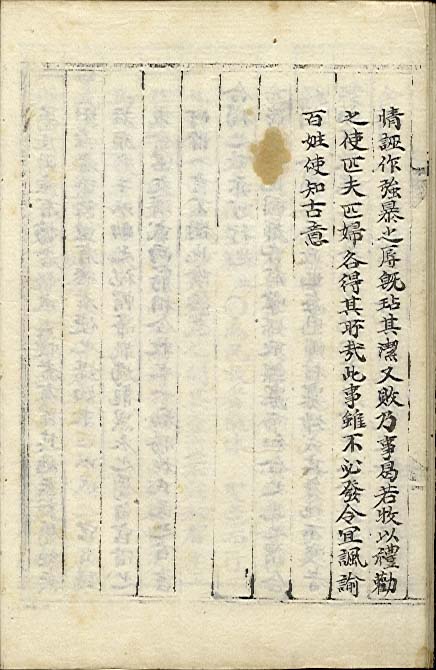 情誣作強暴之辱旣玷其潔又敗乃事曷若收以禮勸
之使匹夫匹婦各得其所哉此事雖不必發令宜諷諭
百姓使知古意